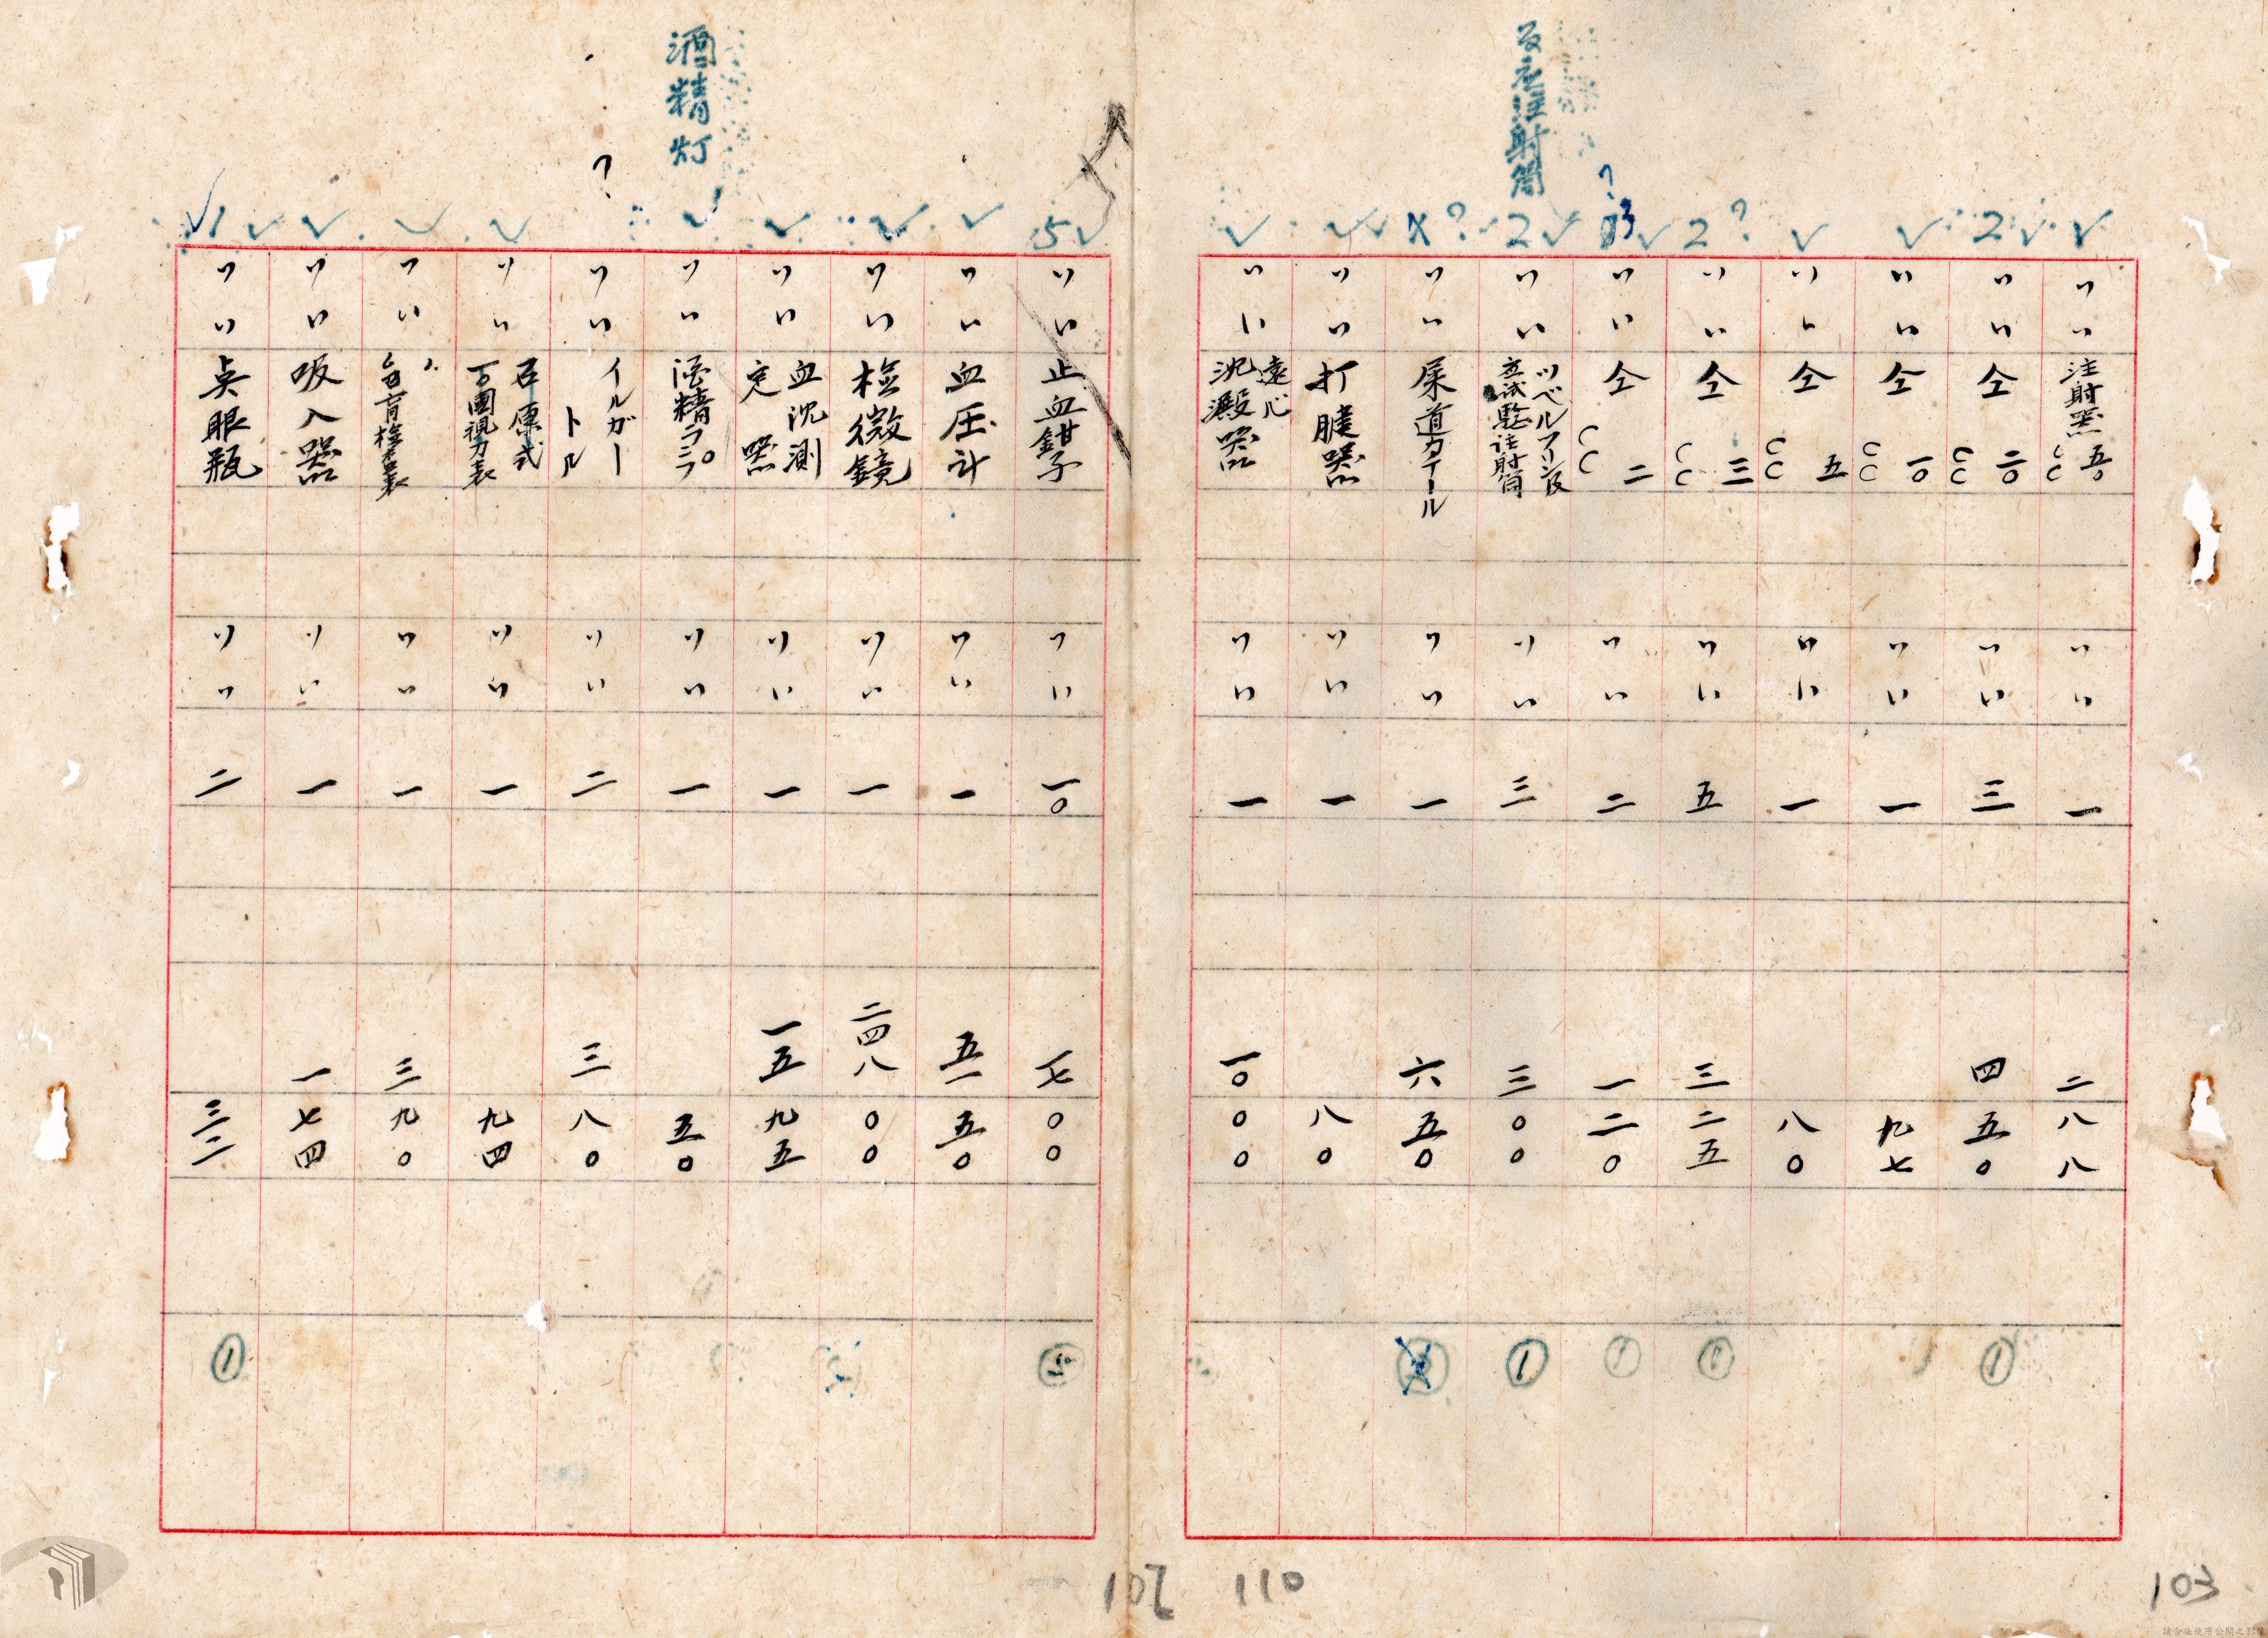 反応注射筒
✓ 2✓ ✓ ✓ 2? 3✓ 2✓ x? ✓ ✓
〃 〃 注射器 五〇cc 〃 〃 一 二八八
〃 〃 仝 二〇cc 〃 〃 三 四五〇 ①
〃 〃 仝 一〇cc 〃 〃 一 九七
〃 〃 仝 五cc 〃 〃 一 八〇
〃 〃 仝 三cc 〃 〃 五 三二五 ①
〃 〃 仝 二cc 〃 〃 二 一二〇 ①
〃 〃 ツベルクリン反应試驗注射筒 〃 〃 三 三〇〇 ①
〃 〃 尿道カテーテル 〃 〃 一 六五〇
〃 〃 打腱器 〃 〃 一 八〇
〃 〃 遠心沈澱器 〃 〃 一 一〇〇〇
酒精灯
5✓ ✓ ✓ ✓ ✓ ? ✓ ✓ ✓ ✓ 1
〃 〃 止血鉗子 〃 〃 一〇 一七〇〇
〃 〃 血压計 〃 〃 一 五一五〇
〃 〃 檢微鏡 〃 〃 一 二四八〇〇
〃 〃 血沈測定器 〃 〃 一 一五九五
〃 〃 酒精ランプ 〃 〃 一 五〇
〃 〃 イルガートル 〃 〃 二 三八〇
〃 〃 石原式万國視力表 〃 〃 一 九四
〃 〃 〃 色盲検査表 〃 〃 一 三九〇
〃 〃 吸入器 〃 〃 一 一七四
〃 〃 点眼瓶 〃 〃 二 三二 ①
110
103
請合法使用公開之影像